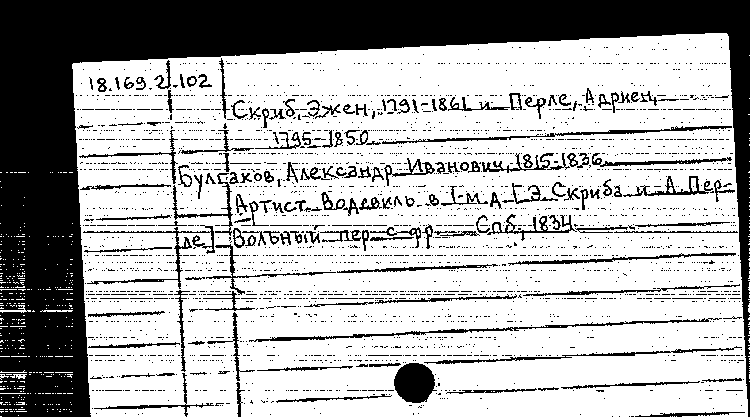 18.169.2.102
Скриб, Эжен, 1791-1861 и Перле, Адриен,
1795-1850.
Булгаков, Александр Иванович, 1815-1836
Артист. Водевиль в 1-м д. Э. Скриба и А. Пер-
ле] Вольный пер. с фр. Спб., 1834.